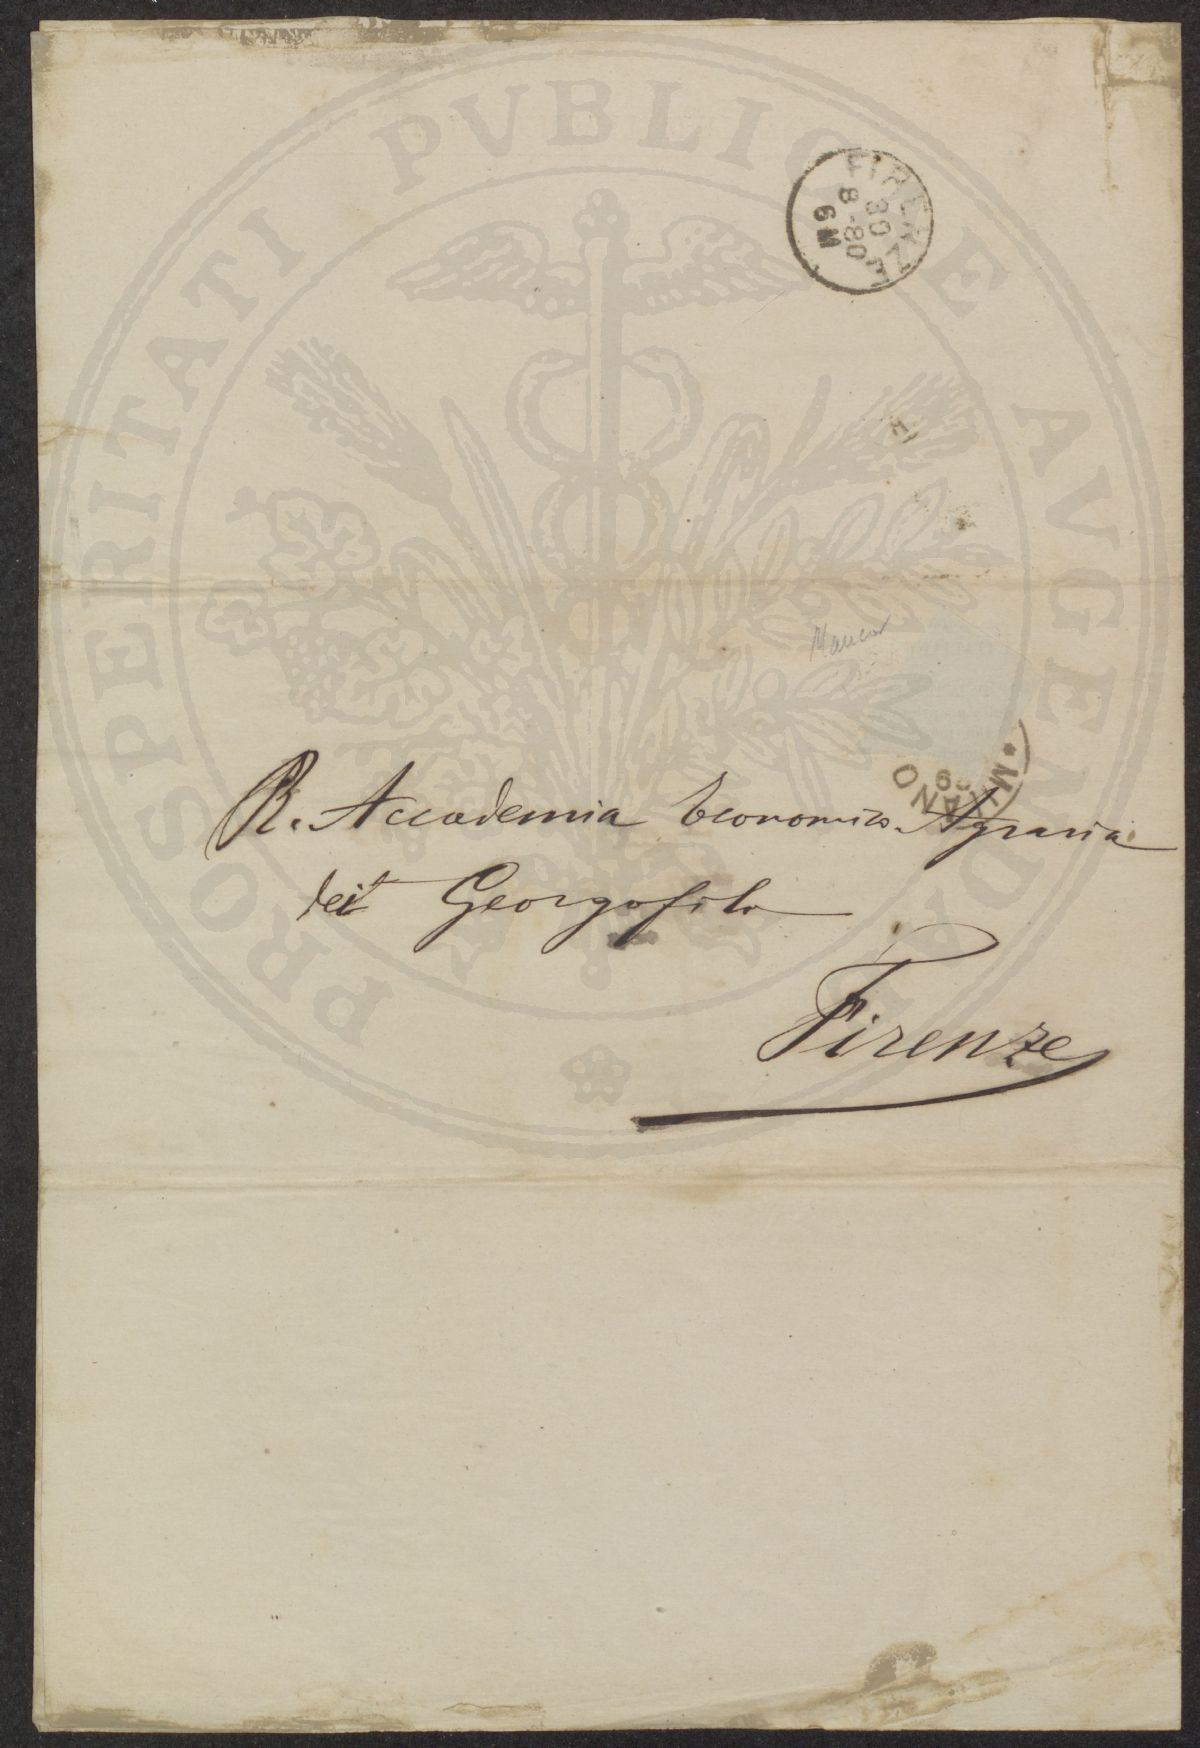 PROSPERITATI PVBLICAE AVGENDAE
FIRENZE
30
8-80
6M
* MILANO
R. Accademia Economico-Agraria
dei Georgofili
Firenze